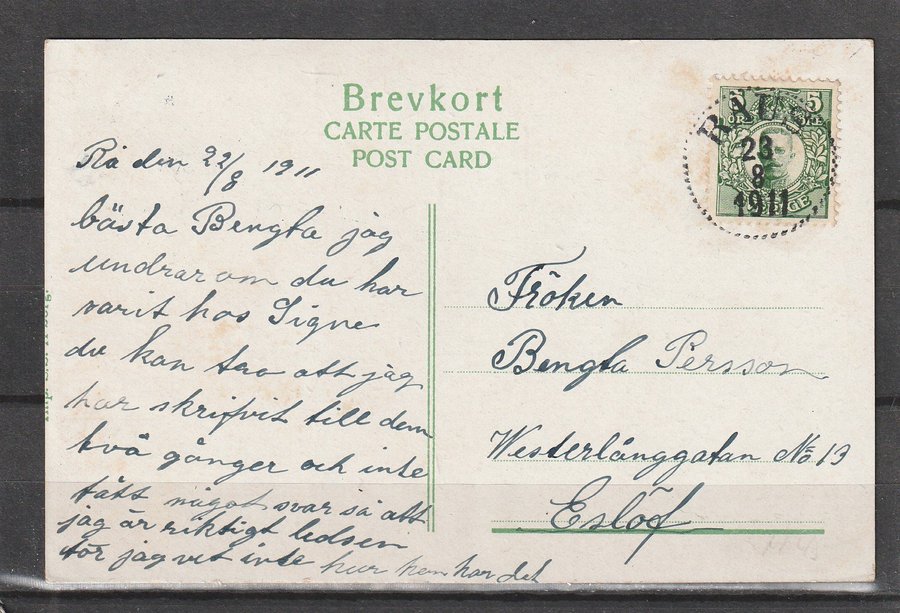 Brevkort
CARTE POSTALE
POST CARD
Rå den 22/8 1911
bästa Bengta jag
undrar om du har
varit hos Signe
du kan tro att jag
har skrifvit till dem
två gånger och inte
fått något svar så att
jag är riktigt ledsen
för jag vet inte hur hon har det
5 5
ÖRE ÖRE
SVERIGE
RÅÅ
23
8
1911
Fröken
Bengta Persson
Westerlånggatan No 13
Eslöf